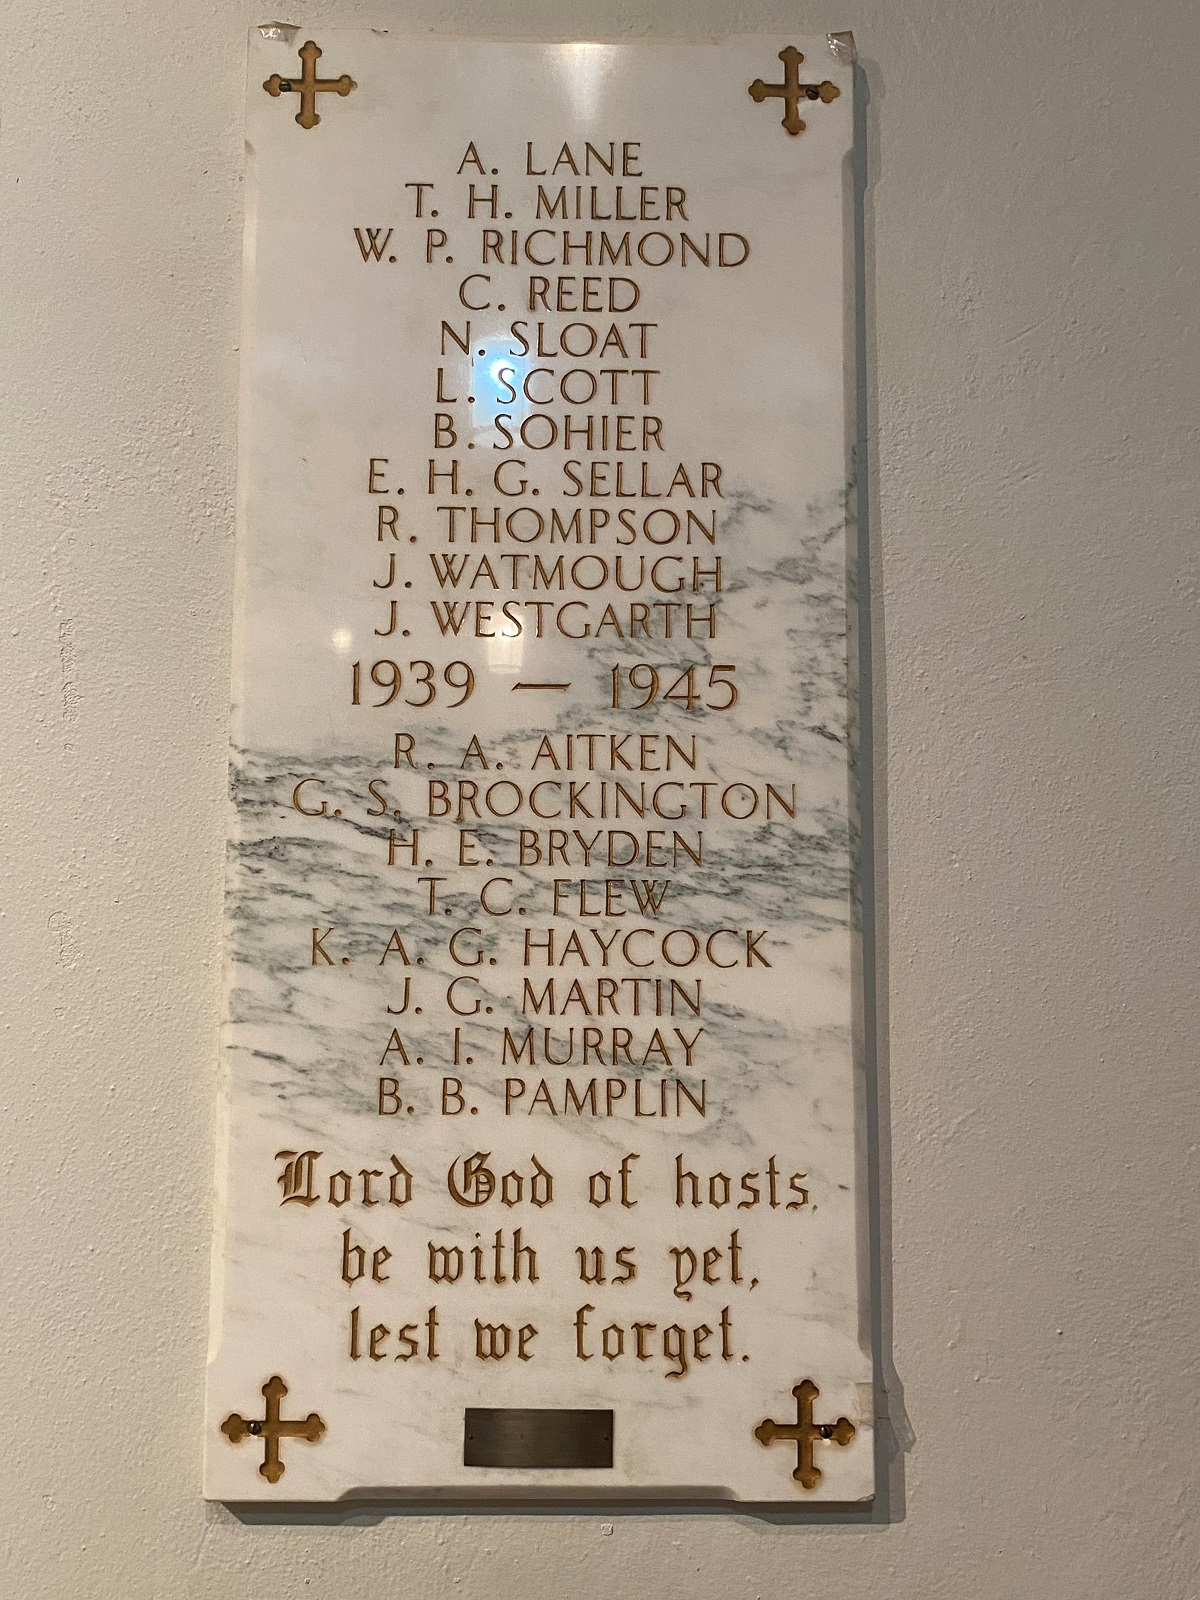 A. LANE
T. H. MILLER
W. P. RICHMOND
C. REED
N. SLOAT
L. SCOTT
B. SOHIER
E. H. G. SELLAR
R. THOMPSON
J. WATMOUGH
J. WESTGARTH
1939 — 1945
R. A. AITKEN
G. S. BROCKINGTON
H. E. BRYDEN
T. C. FLEW
K. A. G. HAYCOCK
J. G. MARTIN
A. I. MURRAY
B. B. PAMPLIN
Lord God of hosts,
be with us yet,
lest we forget.